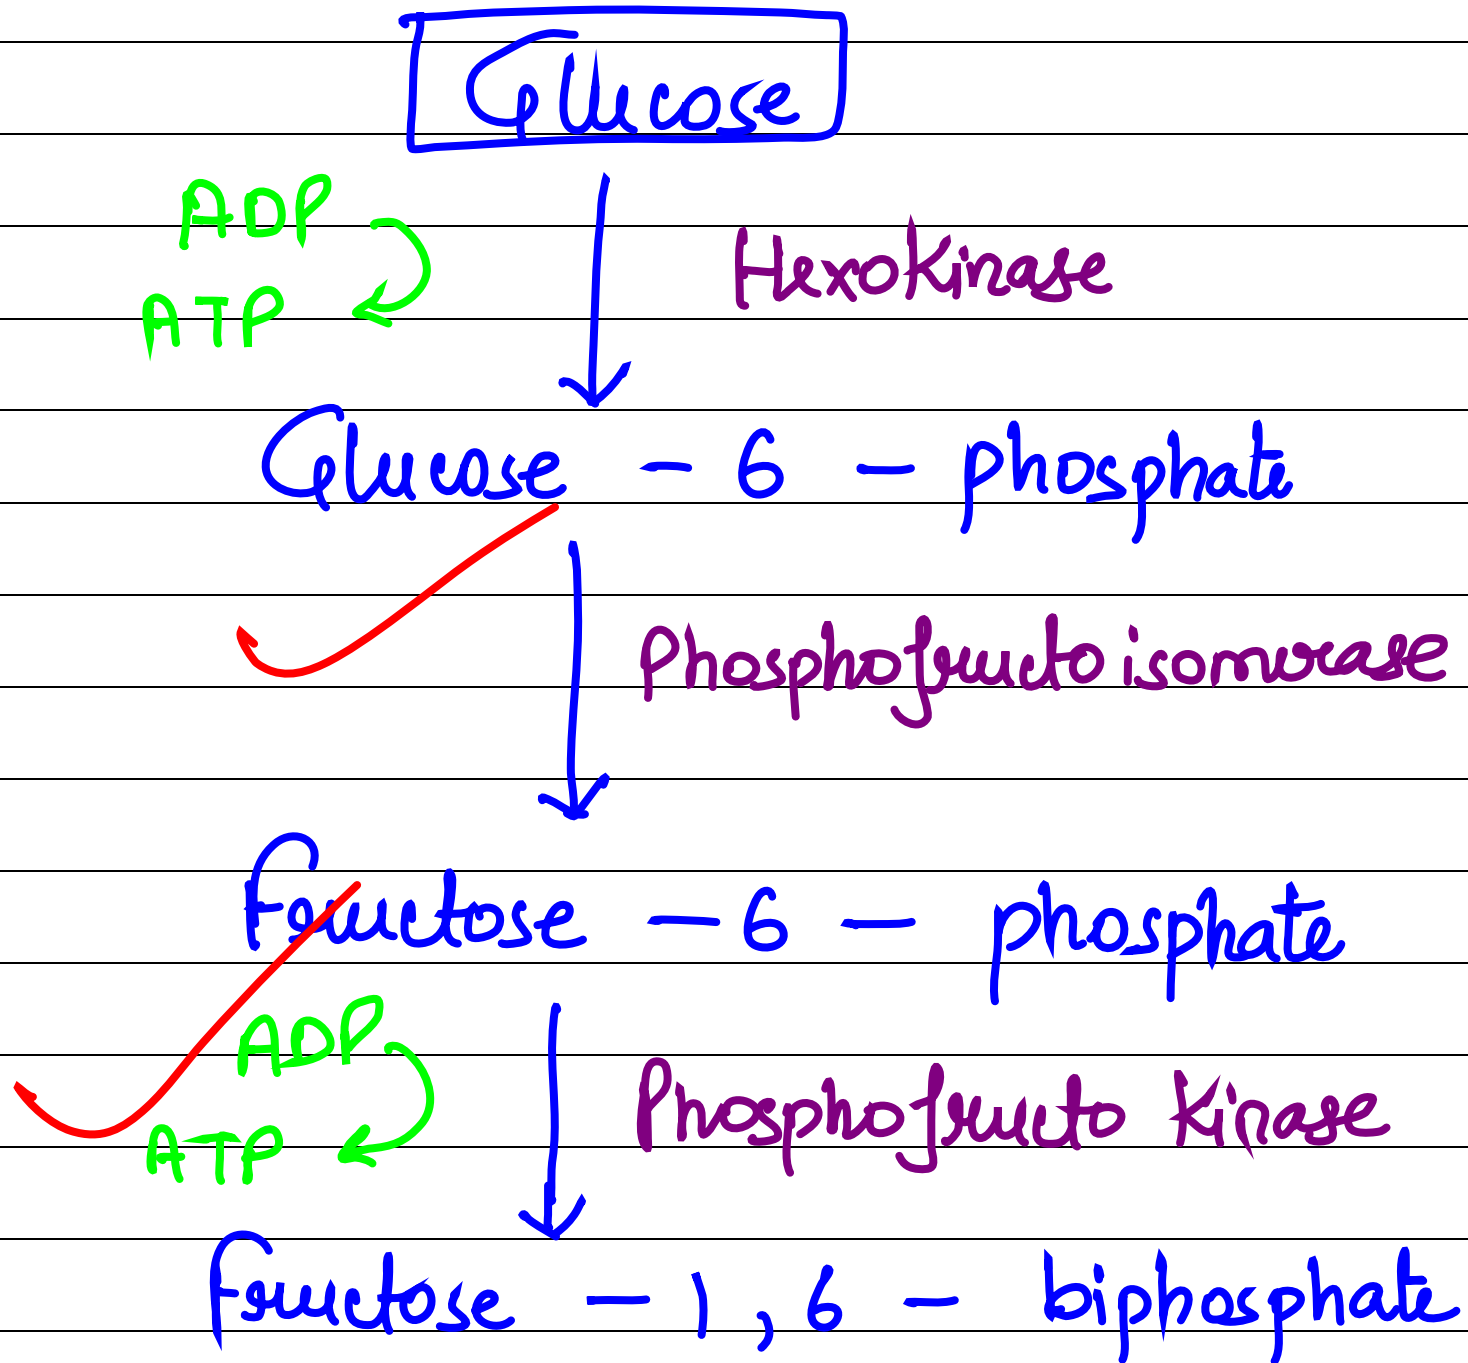 Glucose
ADP
Hexokinase
ATP
Glucose - 6 - phosphate
Phosphofructoisomerase
Fructose - 6 - phosphate
ADP
Phosphofructo Kinase
ATP
Fructose - 1, 6 - biphosphate